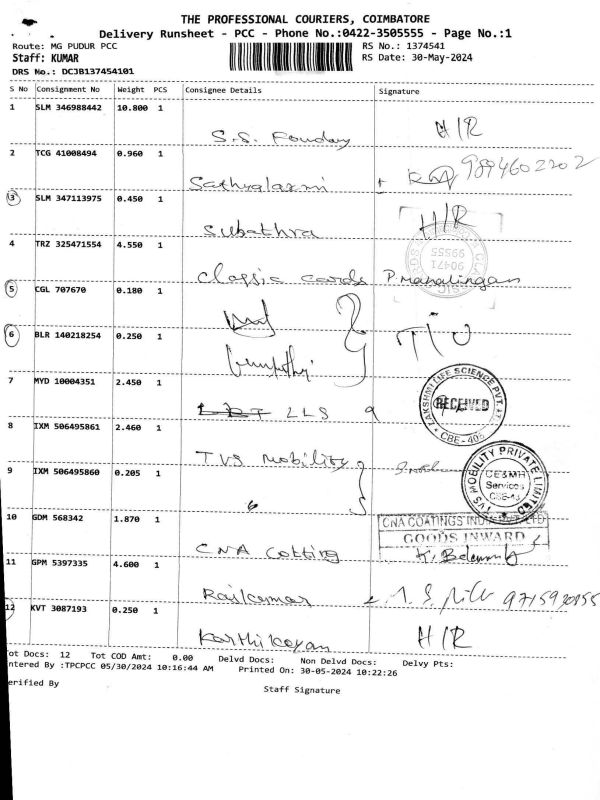 THE PROFESSIONAL COURIERS, COIMBATORE
Delivery Runsheet - PCC - Phone No.:0422-3505555 - Page No.:1
Route: MG PUDUR PCC RS No.: 1374541
Staff: KUMAR RS Date: 30-May-2024
DRS No.: DCJB137454101
S No Consignment No Weight PCS Consignee Details Signature
1 SLM 346988442 10.800 1
S.S. Foundry H/R
2 TCG 41008494 0.960 1
Sathyalaxmi 9894602202
3 SLM 347113975 0.450 1
Subathra H/R
4 TRZ 325471554 4.550 1
Classic cards P. Mahalingan
5 CGL 707670 0.180 1
6 BLR 140218254 0.250 1
7 MYD 10004351 2.450 1
LLS
LAKSHMI LIFE SCIENCE PVT. LTD.
RECEIVED
CBE-405
8 IXM 506495861 2.460 1
TVS mobility
TVS MOBILITY PRIVATE LIMITED
CE&MH
Services
CBE-43
9 IXM 506495860 0.205 1
6
10 GDM 568342 1.870 1
CNA Cotting
CNA COATINGS INDIA PVT LTD
GOODS INWARD
11 GPM 5397335 4.600 1
Rajkumar
12 KVT 3087193 0.250 1
Karthikeyan H/R
Tot Docs: 12 Tot COD Amt: 0.00 Delvd Docs: Non Delvd Docs: Delvy Pts:
ntered By :TPCPCC 05/30/2024 10:16:44 AM Printed On: 30-05-2024 10:22:26
erified By
Staff Signature